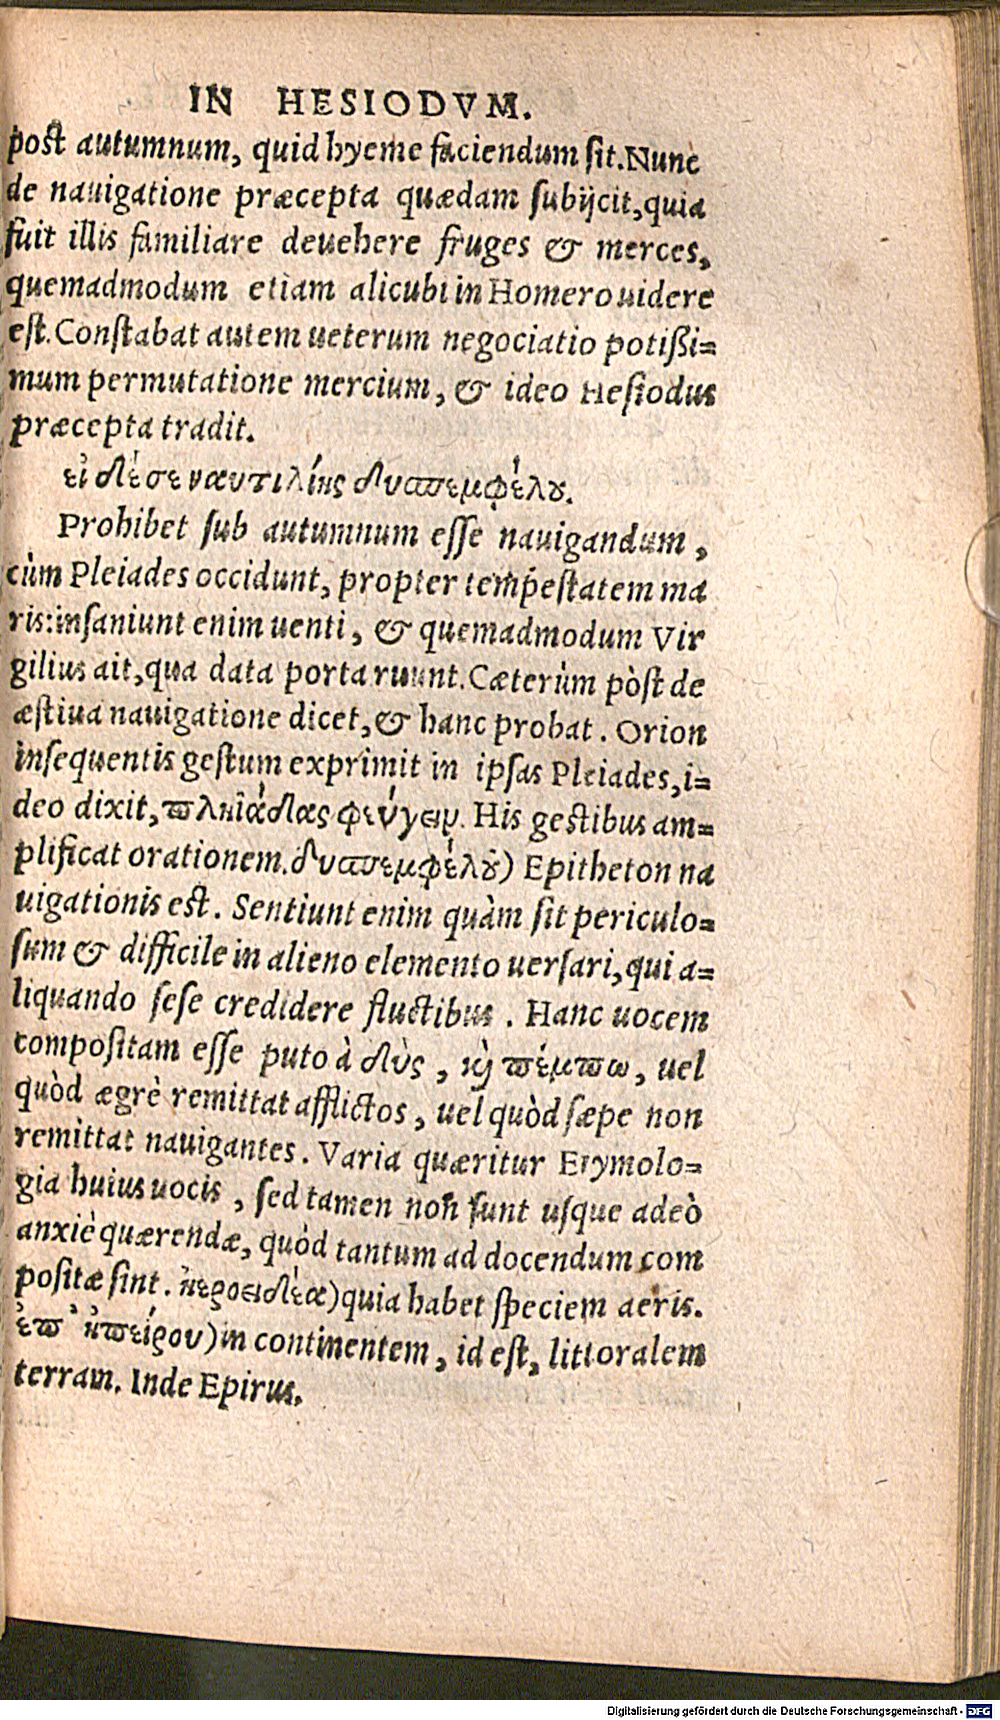 IN HESIODVM.
post autumnum, quid hyeme faciendum sit. Nunc
de nauigatione præcepta quædam subijcit, quia
fuit illis familiare deuehere fruges & merces,
quemadmodum etiam alicubi in Homero uidere
est. Constabat autem ueterum negociatio potißi=
mum permutatione mercium, & ideo Hesiodus
præcepta tradit.
εἰ δέ σε ναυτιλίης δυσπεμφέλου.
Prohibet sub autumnum esse nauigandum,
cùm Pleiades occidunt, propter tempestatem ma
ris: insaniunt enim uenti, & quemadmodum Vir
gilius ait, qua data porta ruunt. Cæterùm pòst de
æstiua nauigatione dicet, & hanc probat. Orion
insequentis gestum exprimit in ipsas Pleiades, i=
deo dixit, πληϊάδας φεύγειν. His gestibus am=
plificat orationem. δυσπεμφέλου) Epitheton na
uigationis est. Sentiunt enim quàm sit periculo=
sum & difficile in alieno elemento uersari, qui a=
liquando sese credidere fluctibus. Hanc uocem
compositam esse puto à δὺς, καὶ πέμπω, uel
quòd ægrè remittat afflictos, uel quòd sæpe non
remittat nauigantes. Varia quæritur Etymolo=
gia huius uocis, sed tamen non sunt usque adeò
anxiè quærendæ, quòd tantum ad docendum com
positæ sint. ἠεροειδέα) quia habet speciem aeris.
ἐπ' ἠπείρου) in continentem, id est, littoralem
terram. Inde Epirus.
Digitalisierung gefördert durch die Deutsche Forschungsgemeinschaft - DFG